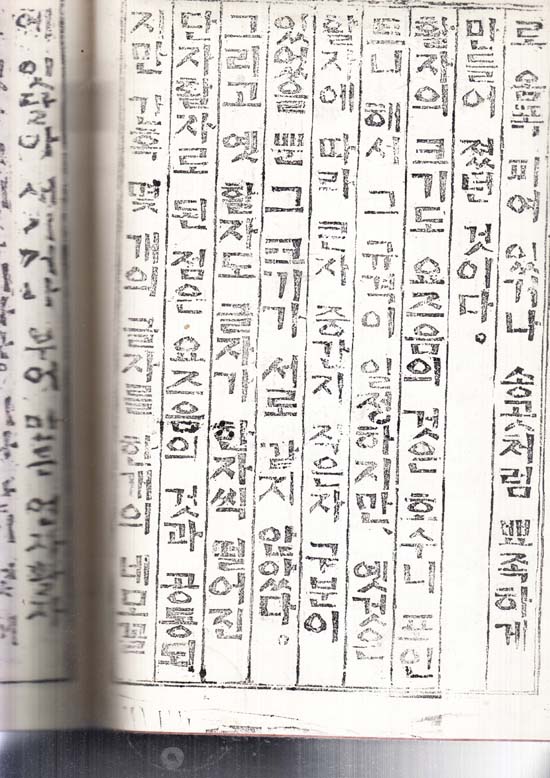 로 움푹 피여 있거나 송곳처럼 뾰족하게
만들어 졌던 것이다。
활자의 크기도 요즈음의 것은 호수니 포인
트니 해서 그 규격이 일정하지만、옛것은
활자에 따라 큰자 중간자 작은자 구분이
있었을 뿐 그 크기가 서로 같지 않았다。
그리고 옛 활자도 글자가 한자씩 떨어진
단자활자로 된 점은 요즈음의 것과 공통되
지만 간혹 몇 개의 글자를 한개의 네모꼴